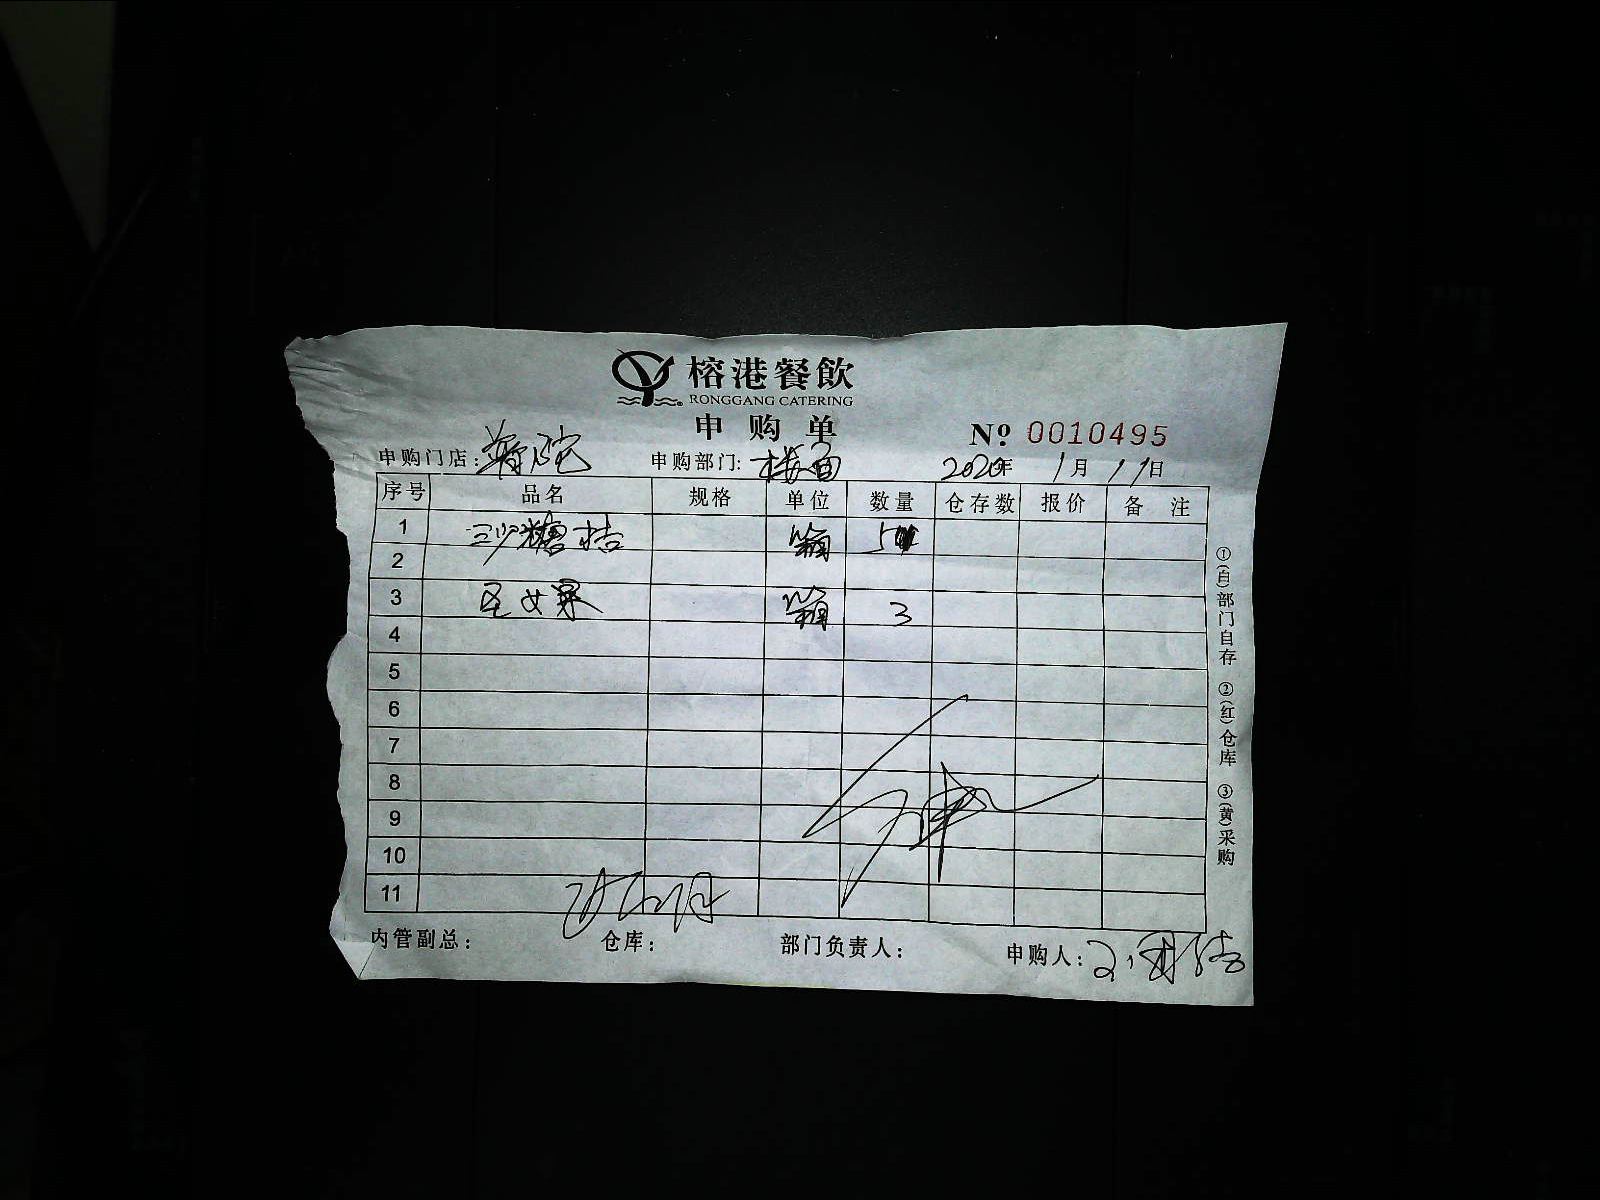 榕港餐飲
RONGGANG CATERING
申购单
№ 0010495
申购门店: 申购部门: 楼面 2020年 1月 11日
序号 品名 规格 单位 数量 仓存数 报价 备注
1 沙糖桔 箱 5
2
3 圣女果 箱 3
4
5
6
7
8
9
10
11
内管副总: 仓库: 部门负责人: 申购人:
①(白)部门自存 ②(红)仓库 ③(黄)采购